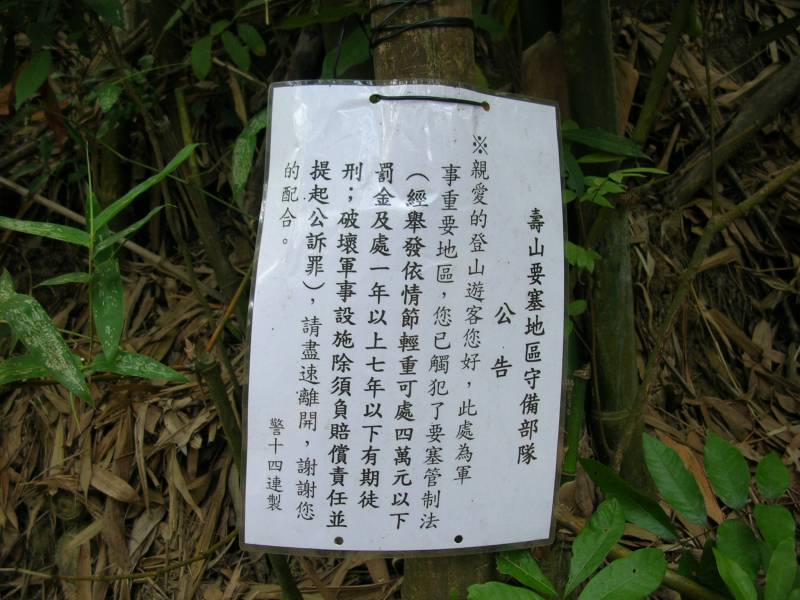 壽山要塞地區守備部隊
公告
※親愛的登山遊客您好，此處為軍
事重要地區，您已觸犯了要塞管制法
（經舉發依情節輕重可處四萬元以下
罰金及處一年以上七年以下有期徒
刑；破壞軍事設施除須負賠償責任並
提起公訴罪），請盡速離開，謝謝您
的配合。
警十四連製